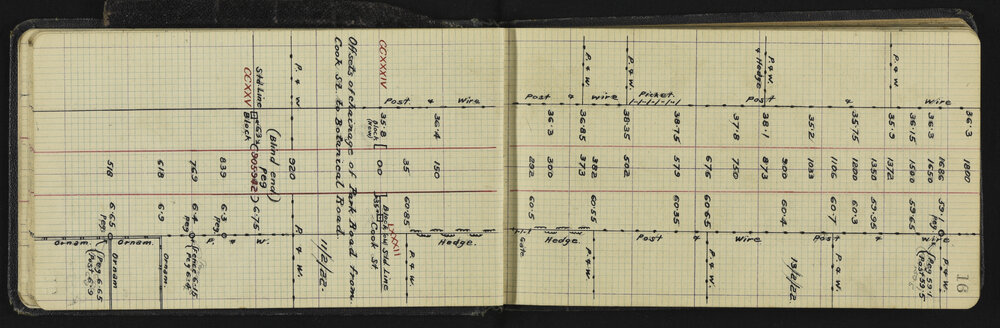 16
36.3 1800
wire 1686 59.1 Peg P. & W.
36.3 1650 wire (Peg 59.1 Post 59.5)
36.15 1500 59.65
P. & W. 35.9 1372
1350 59.95
& 35.75 1200 60.3
1106 60.7 Post & P. & W.
35.2 1053
900 60.4 13/2/22
P. & W. & Hedge 38.1 873
Post
37.8 750 Wire
676 60.65 P. & W.
38.75 579 60.35 &
Picket. Post
P. & W. 38.35 502
wire 382 60.55
P. & W. 36.85 373
& 36.3 300 Hedge.
Post 282 60.5
Gate
Wire 36.4 150 Hedge.
&
Post 35 60.85 P. & W.
LXXXII
CCXXXIV 35.8 Block (New) 00 Block and Std Line
Cook St
Offsets of chainage of Park Road from
Cook St. to Botanical Road.
11/2/22.
P. & W. 920 P. & W.
(Blind end)
Std Line Peg
CCXXV Block (905942) 67.5
W.
&
839 6.3 Peg P.
769 6.4 Peg (Fence 6.15 Peg 6.4)
618 6.9 Ornam.
Ornam.
518 6.65 Peg Ornam
(Peg 6.65 Post 6.9)
Ornam.